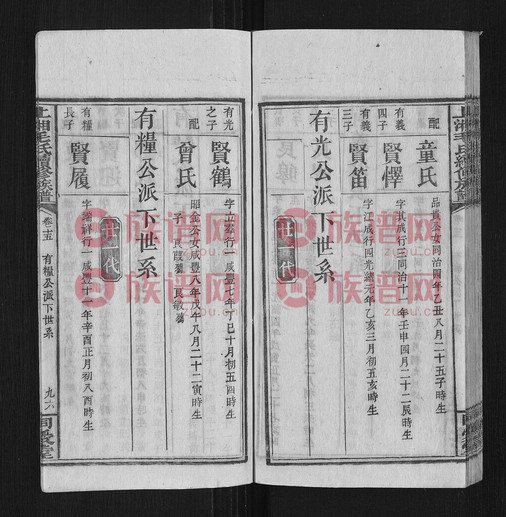 配
童氏
品貴公女同治四年乙丑八月二十五子時生
有義
四子
賢懌
字其成行三同治十一年壬申四月二十二辰時生
有義
三子
賢笛
字江成行四光緒元年乙亥三月初五亥時生
有光公派下世系
廿一代
有光
之子
賢鶴
行一咸豐七年丁巳十月初五酉時生
配
曾氏
昭金公女咸豐八年戊午八月二十二寅時生
子二
有糧公派下世系
廿一代
有糧
長子
賢履
行一咸豐十一年辛酉正月初八酉時生
上湘毛氏續修族譜
卷十五
有糧公派下世系
九六
同愛堂
族谱网
zupu.cn